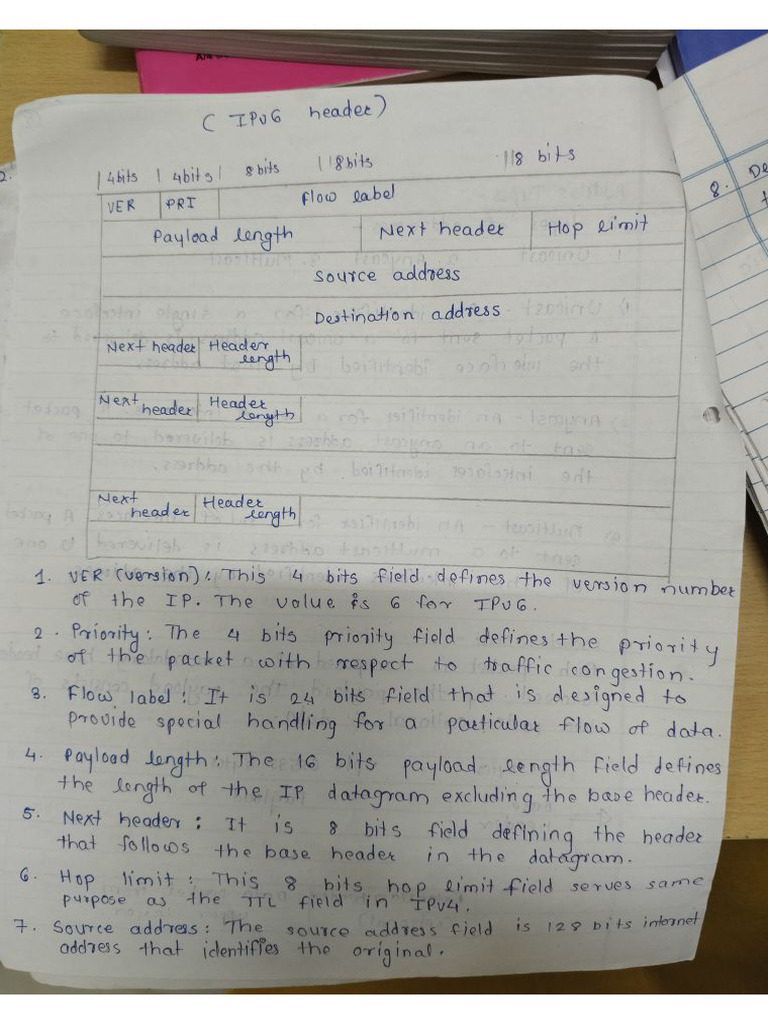 ( IPv6 header)
|4bits | 4bits| 8bits ||8bits ||8 bits
VER PRI Flow label
Payload length Next header Hop limit
Source address
Destination address
Next header Header length
Next header Header length
Next header Header length
1. VER (version): This 4 bits field defines the version number
of the IP. The value is 6 for IPv6.
2. Priority: The 4 bits priority field defines the priority
of the packet with respect to traffic congestion.
3. Flow label: It is 24 bits field that is designed to
provide special handling for a particular flow of data.
4. Payload length: The 16 bits payload length field defines
the length of the IP datagram excluding the base header.
5. Next header: It is 8 bits field defining the header
that follows the base header in the datagram.
6. Hop limit: This 8 bits hop limit field serves same
purpose as the TTL field in IPv4.
7. Source address: The source address field is 128 bits internet
address that identifies the original.
2.
8. De